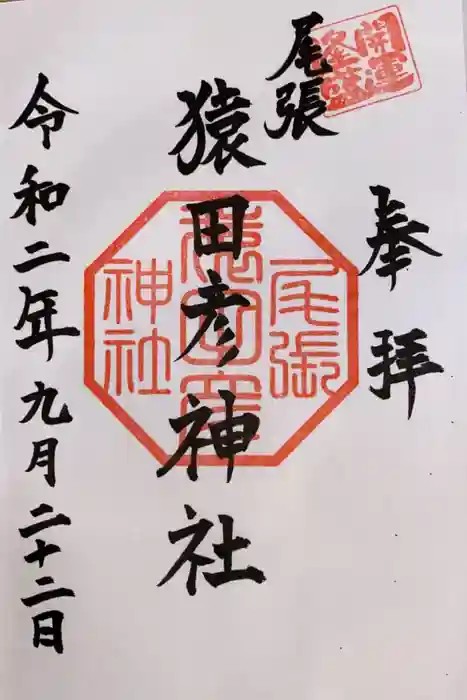 奉拝
開運
隆盛
尾張
猿田彦神社
尾張
猿田彦
神社
令和二年九月二十二日